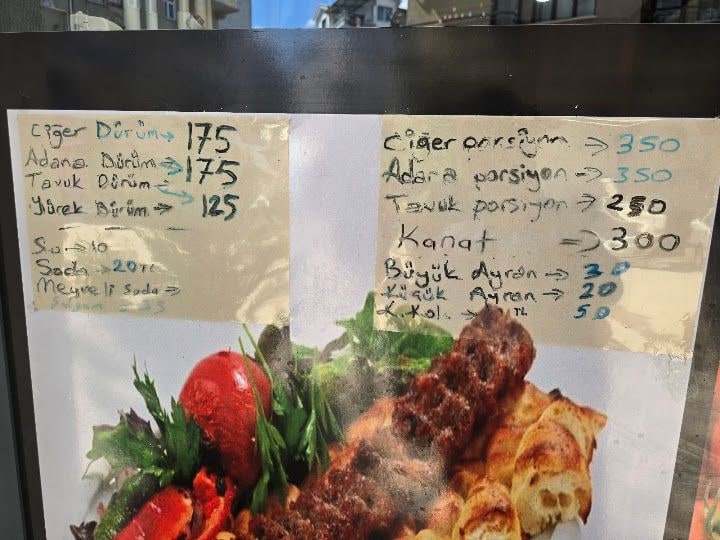 Ciğer Dürüm → 175
Adana Dürüm → 175
Tavuk Dürüm →
Yürek Dürüm → 125
Su → 10
Soda → 20 TL
Meyveli Soda →
Ciğer porsiyon → 350
Adana porsiyon → 350
Tavuk porsiyon → 250
Kanat => 300
Büyük Ayran → 30
Küçük Ayran → 20
50